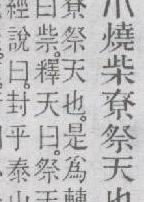 燒柴尞祭天也
尞祭天也。是爲轉
曰祡。釋天曰。祭天
經說曰。封乎泰山